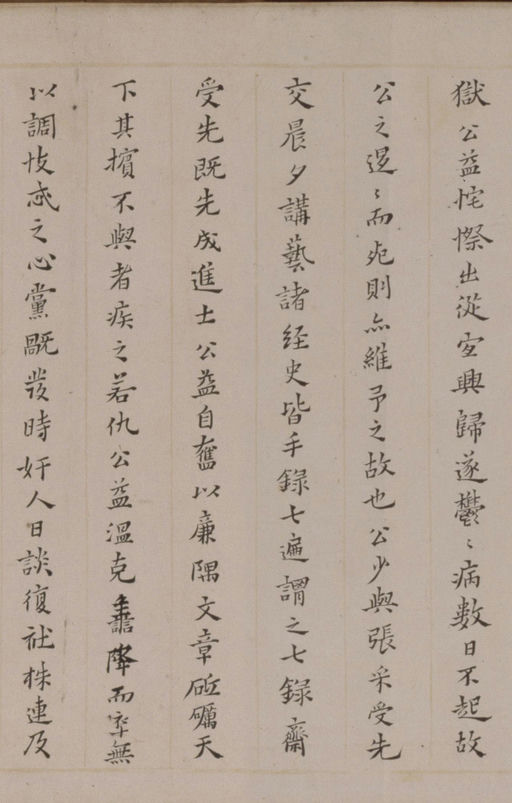 獄公益恠憏出從宜興歸遂鬱〻病數日不起故
公之遌〻而死則亦維予之故也公少與張采受先
交晨夕講藝諸経史皆手錄七遍謂之七錄齋
受先既先成進士公益自奮以廉隅文章砥礪天
下其擯不與者疾之若仇公益溫克譫降而卒無
以調忮忒之心黨戤發時奸人日談復社株連及